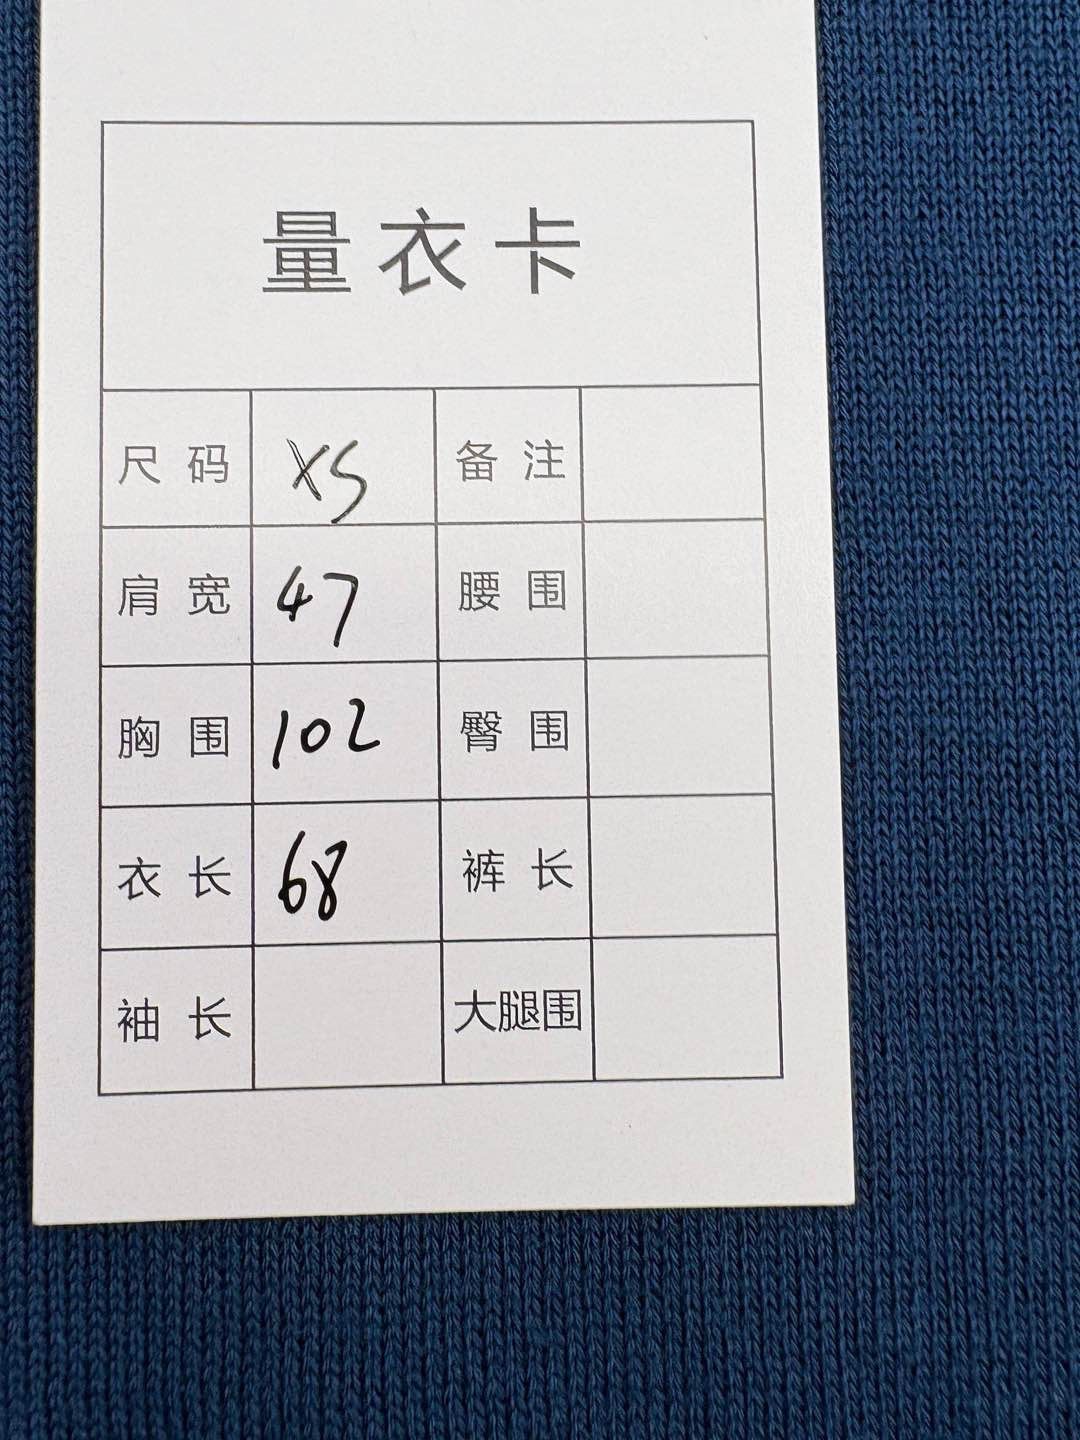 量衣卡
尺码 XS 备注
肩宽 47 腰围
胸围 102 臀围
衣长 68 裤长
袖长 大腿围